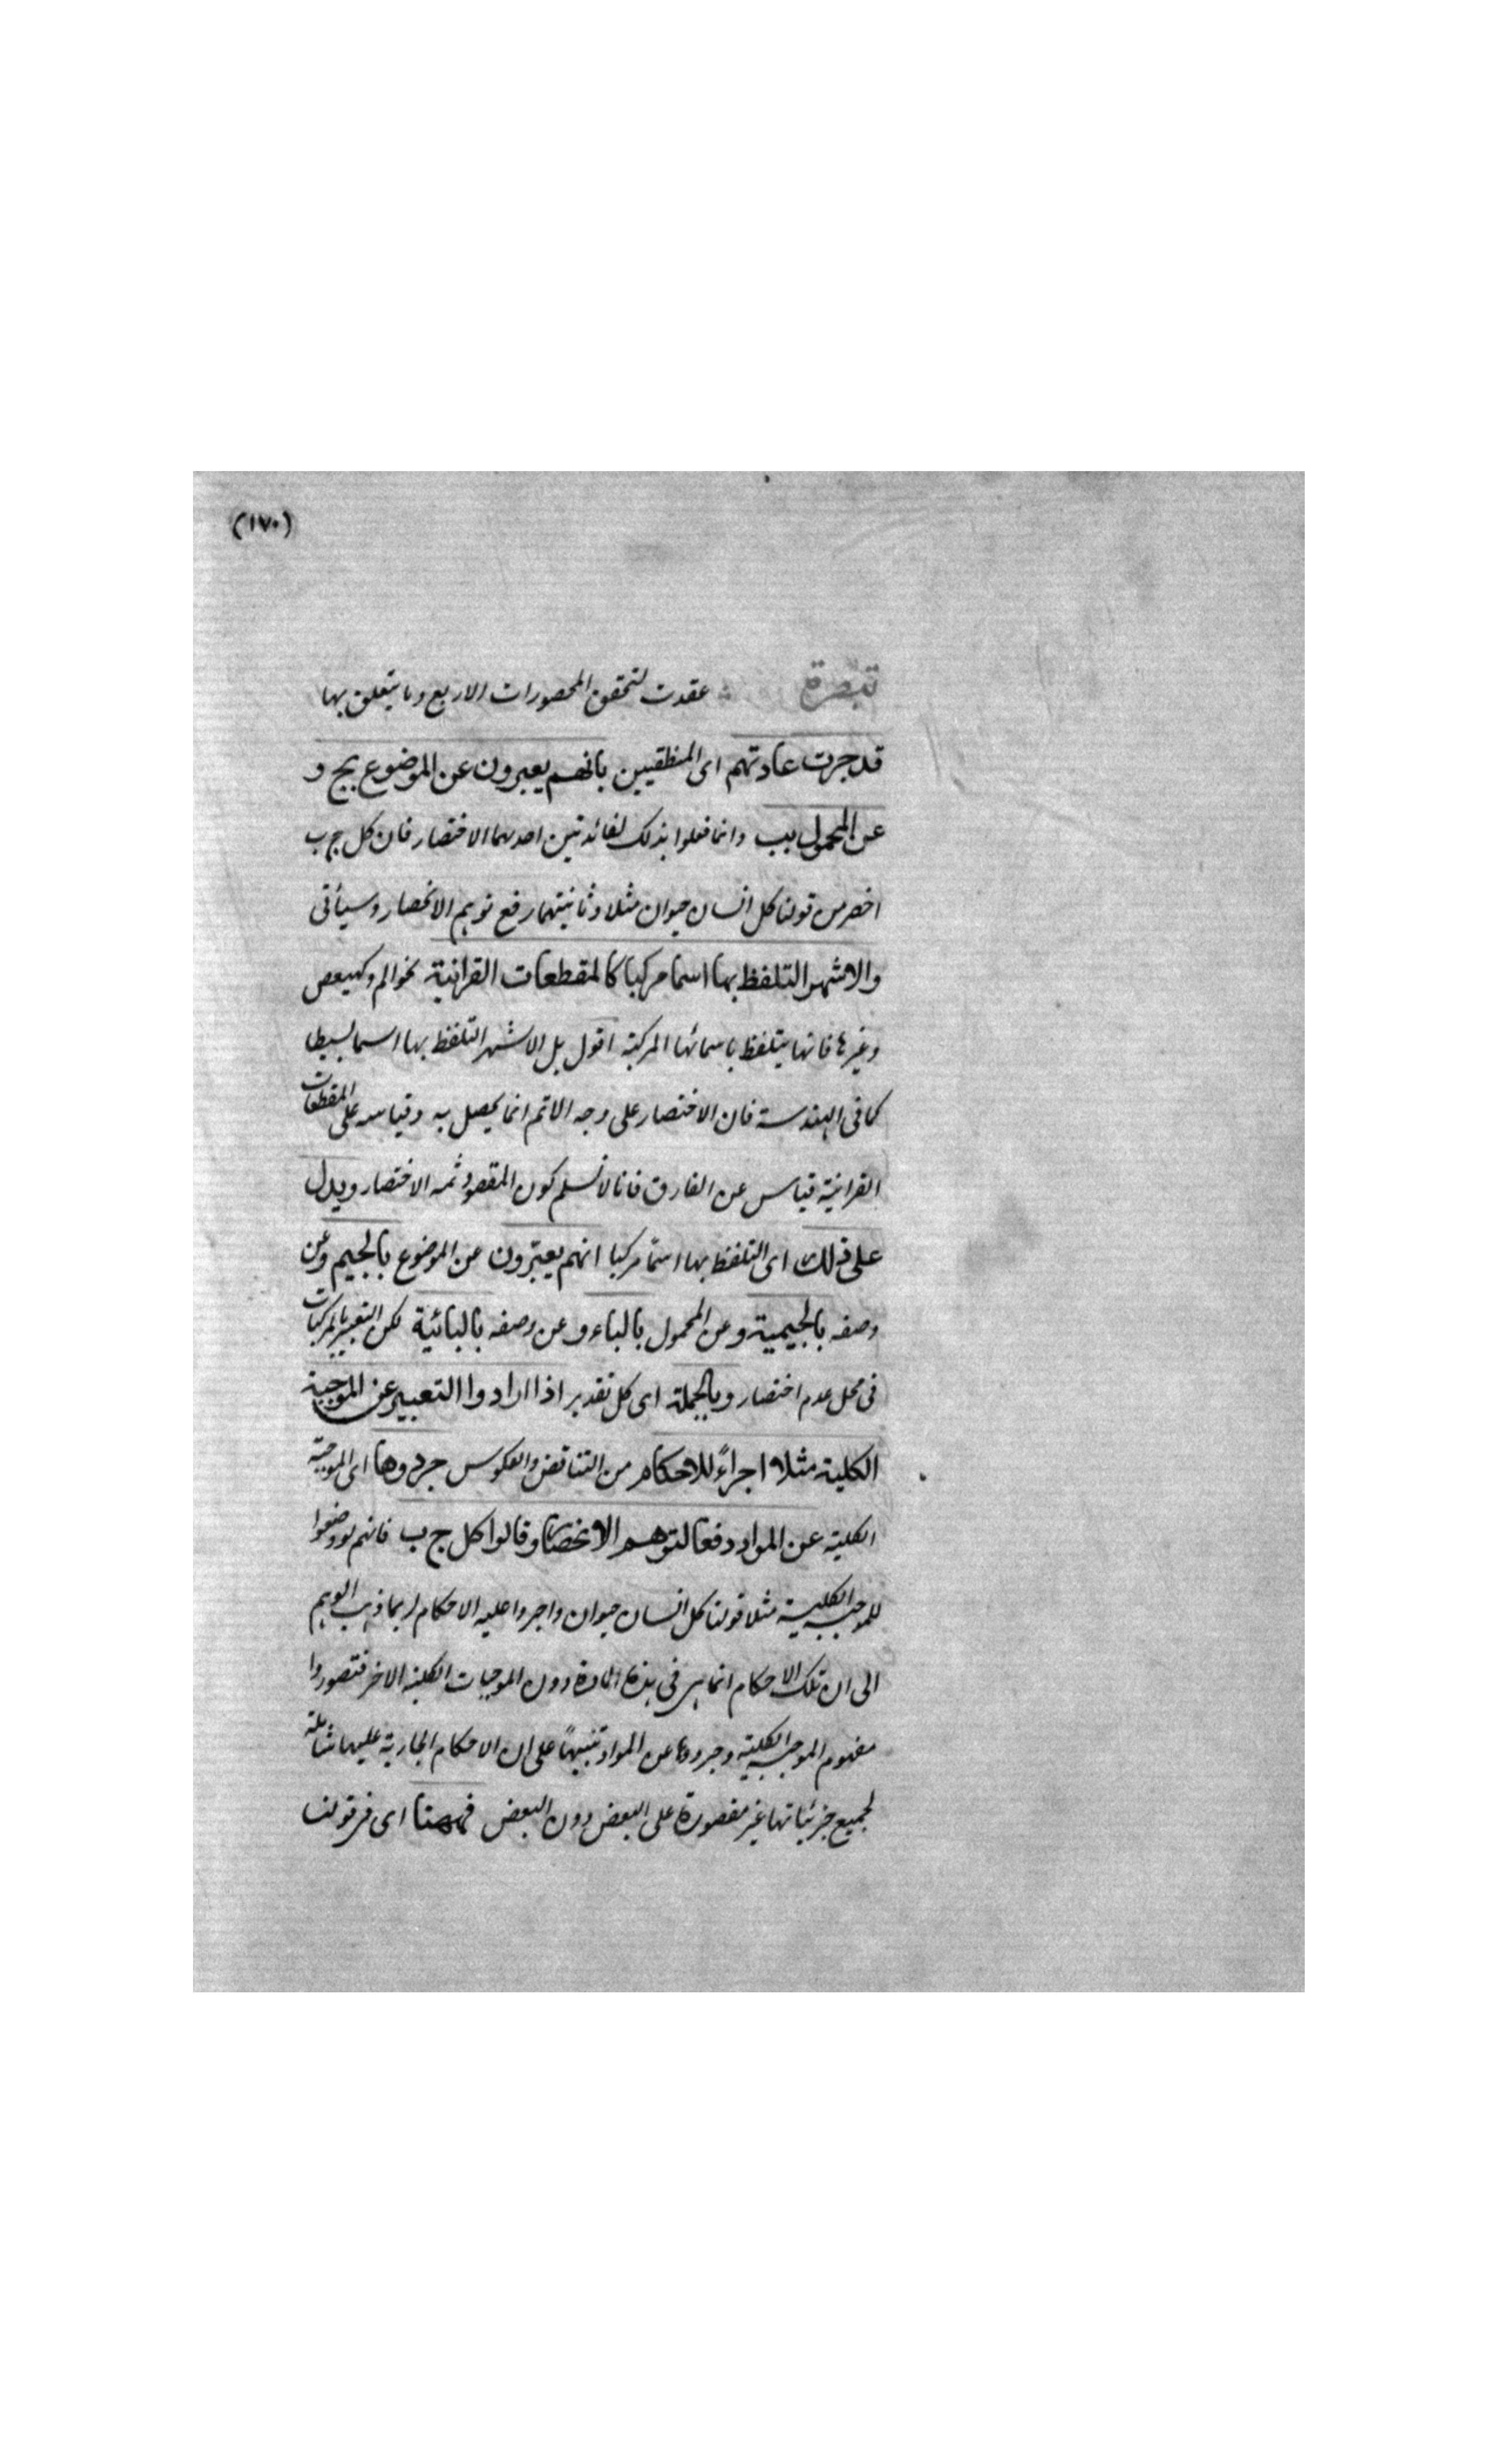 (١٧٠)
تبصرة عقدت لتحقق المحصورات الاربع وما يتعلق بها
قد جرت عادتهم اى المنطقيين بانهم يعبرون عن الموضوع بج و
عن المحمول بب وانما فعلوا بذلك لفائدتين احدهما الاختصار فان كل ج ب
اخصر من قولنا كل انسان حيوان مثلا وثانيتهما رفع توهم الانحصار وسيأتى
والاشهر التلفظ بها اسما مركبا كالمقطعات القرانية نحو الم وكهيعص
وغيرها فانها يتلفظ باسمائها المركبة اقول بل الاشهر التلفظ بها اسما بسيطا
كما فى الهندسة فان الاختصار على وجه الاتم انما يحصل به وقياسه على المقطعات
القرانية قياس عن الفارق فانا لا نسلم كون المقصود ثمه الاختصار ويدل
على ذلك اى التلفظ بها اسمًا مركبا انهم يعبّرون عن الموضوع بالجيم وعن
وصفه بالجيمية وعن المحمول بالباء وعن وصفه بالبائية لكن التعبير بالمركبات
فى محل عدم اختصار وبالجملة اى كل تقدير اذا ارادوا التعبير عن الموجبة
الكلية مثلا اجراءً للاحكام من التناقض والعكوس جردوها اى الموجبة
الكلية عن المواد دفعا لتوهم الانحصار وقالوا كل ج ب فانهم لو وضعوا
للموجبة الكلية مثلا قولنا كل انسان حيوان واجروا عليه الاحكام لربما ذهب الوهم
الى ان تلك الاحكام انما هى فى هذه المادة دون الموجبات الكلية الاخر فتصوروا
مفهوم الموجبة الكلية وجردوها عن المواد تنبيهًا على ان الاحكام الجارية عليها شاملة
لجميع جزئياتها غير مقصورة على البعض دون البعض فههنا اى فى قولنا